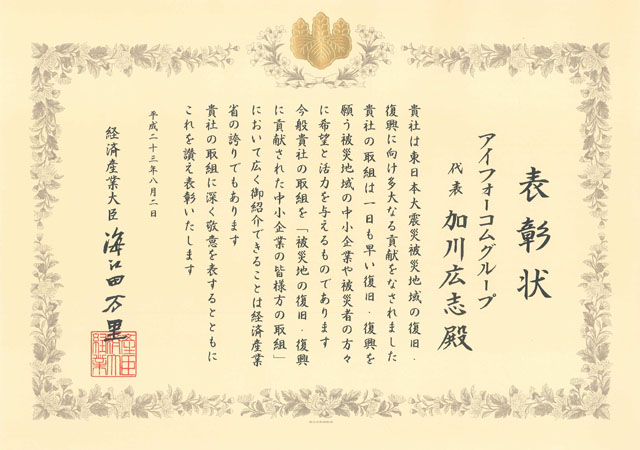 表彰状
アイフォーコムグループ
代表 加川広志殿
貴社は東日本大震災被災地域の復旧・
復興に向け多大なる貢献をなされました
貴社の取組は一日も早い復旧・復興を
願う被災地域の中小企業や被災者の方々
に希望と活力を与えるものであります
今般貴社の取組を「被災地の復旧・復興
に貢献された中小企業の皆様方の取組」
において広く御紹介できることは経済産業
省の誇りでもあります
貴社の取組に深く敬意を表するとともに
これを讃え表彰いたします
平成二十三年八月二日
経済産業大臣 海江田万里